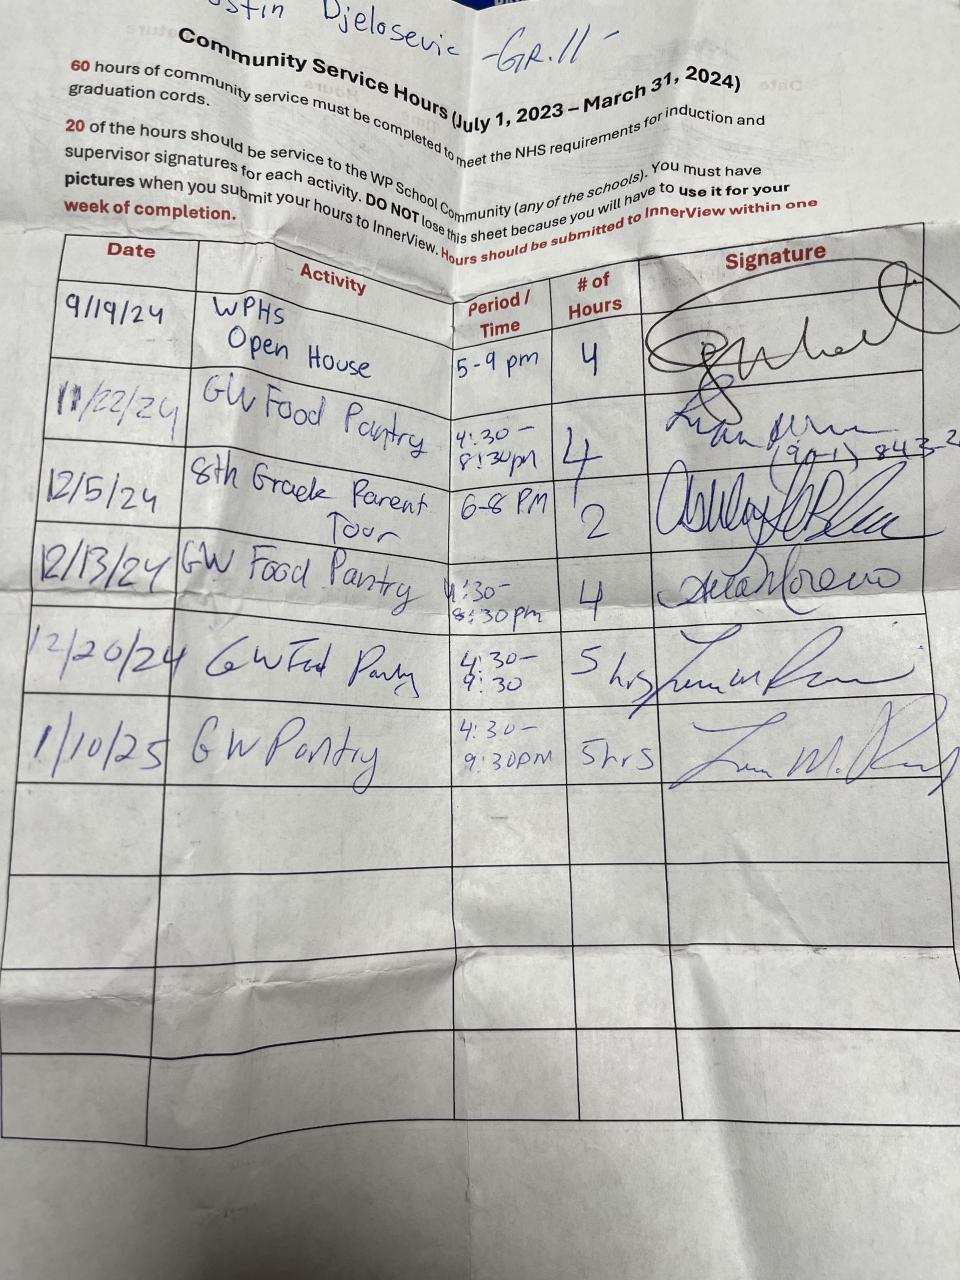 Djelosevic -Gr.11-
Community Service Hours (July 1, 2023 – March 31, 2024)
60 hours of community service must be completed to meet the NHS requirements for induction and
graduation cords.
20 of the hours should be service to the WP School Community (any of the schools). You must have
supervisor signatures for each activity. DO NOT lose this sheet because you will have to use it for your
pictures when you submit your hours to InnerView. Hours should be submitted to InnerView within one
week of completion.
Date Activity Period / Time # of Hours Signature
9/19/24 WPHS Open House 5-9 pm 4
11/22/24 GW Food Pantry 4:30- 8:30pm 4
12/5/24 8th Grade Parent Tour 6-8 PM 2
12/13/24 GW Food Pantry 4:30- 8:30pm 4 Moreno
12/20/24 GW Food Pantry 4:30- 9:30 5 hrs
1/10/25 GW Pantry 4:30- 9:30PM 5hrs